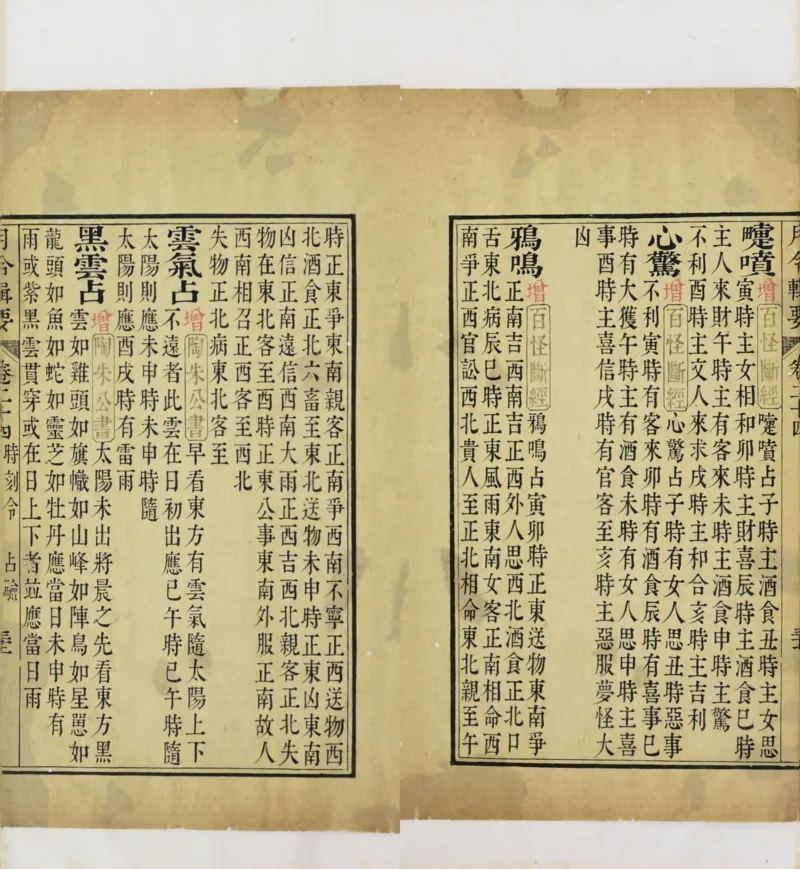 月令輯要 卷二十四
嚏噴增百怪斷經嚏噴占子時主酒食丑時主女思
寅時主女相和卯時主財喜辰時主酒食巳時
主人來財午時主有客來未時主酒食申時主驚
不利酉時主文人來求戌時主和合亥時主吉利
心驚增百怪斷經心驚占子時有女人思丑時惡事
不利寅時有客來卯時有酒食辰時有喜事巳
時有大獲午時主有酒食未時有女人思申時主喜
事酉時主喜信戌時有官客至亥時主惡服夢怪大
凶
鴉鳴增百怪斷經鴉鳴占寅卯時正東送物東南爭
正南吉西南吉正西外人思西北酒食正北口
舌東北病辰巳時正東風雨東南女客正南相命西
南爭正西官訟西北貴人至正北相命東北親至午
時正東爭東南親客正南爭西南不寧正西送物西
北酒食正北六畜至東北送物未申時正東凶東南
凶信正南遠信西南大雨正西吉西北親客正北失
物在東北客至酉時正東公事東南外服正南故人
西南相召正西客至西北
失物正北病東北客至
雲氣占增陶朱公書早看東方有雲氣隨太陽上下
不遠者此雲在日初出應巳午時巳午時隨
太陽則應未申時未申時隨
太陽則應酉戌時有雷雨
黑雲占增陶朱公書太陽未出將晨之先看東方黑
雲如雞頭如旗幟如山峰如陣鳥如星罳如
龍頭如魚如蛇如靈芝如牡丹應當日未申時有
雨或紫黑雲貫穿或在日上下者並應當日雨
月令輯要 卷二十四時刻令 占驗